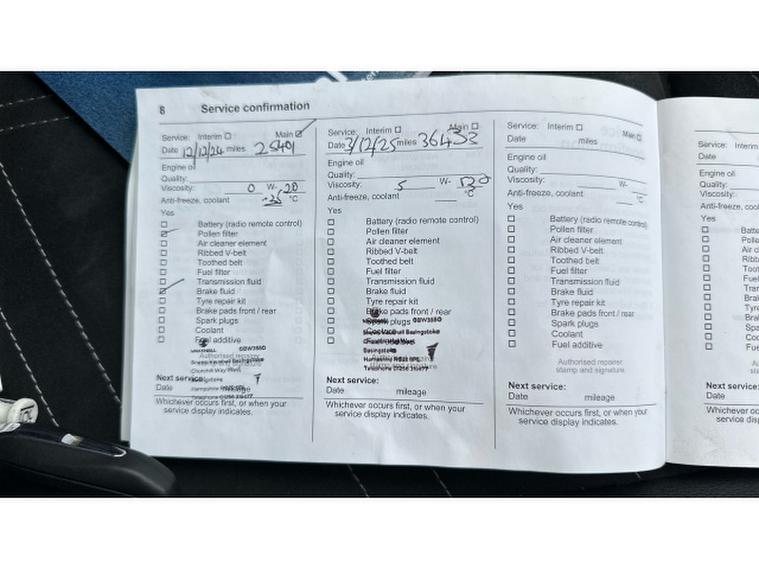 8 Service confirmation
Service: Interim ☐ Main ☑
Date 12/12/24 miles 25401
Engine oil
Quality:
Viscosity: 0 W- 20
Anti-freeze, coolant -35 °C
Yes
☐ Battery (radio remote control)
☑ Pollen filter
☐ Air cleaner element
☐ Ribbed V-belt
☐ Toothed belt
☐ Fuel filter
☐ Transmission fluid
☑ Brake fluid
☐ Tyre repair kit
☐ Brake pads front / rear
☐ Spark plugs
☐ Coolant
☐ Fuel additive
Authorised repairer
Churchill Way West
Next service:
Date mileage
Whichever occurs first, or when your
service display indicates.
Service: Interim ☐ Main ☐
Date 3/12/25 miles 36453
Engine oil
Quality:
Viscosity: 5 W-
Anti-freeze, coolant °C
Yes
☐ Battery (radio remote control)
☐ Pollen filter
☐ Air cleaner element
☐ Ribbed V-belt
☐ Toothed belt
☐ Fuel filter
☐ Transmission fluid
☐ Brake fluid
☐ Tyre repair kit
☐ Brake pads front / rear
☐ Spark plugs
Basingstoke
Next service:
Date mileage
Whichever occurs first, or when your
service display indicates.
Service: Interim ☐ Main ☐
Date miles
Engine oil
Quality:
Viscosity: W-
Anti-freeze, coolant °C
Yes
☐ Battery (radio remote control)
☐ Pollen filter
☐ Air cleaner element
☐ Ribbed V-belt
☐ Toothed belt
☐ Fuel filter
☐ Transmission fluid
☐ Brake fluid
☐ Tyre repair kit
☐ Brake pads front / rear
☐ Spark plugs
☐ Coolant
☐ Fuel additive
Authorised repairer
stamp and signature
Next service:
Date mileage
Whichever occurs first, or when your
service display indicates.
Service: Interim
Date
Engine oil
Quality:
Viscosity:
Anti-freeze, cool
Yes
Next service:
Date
Whichever oc
service disp